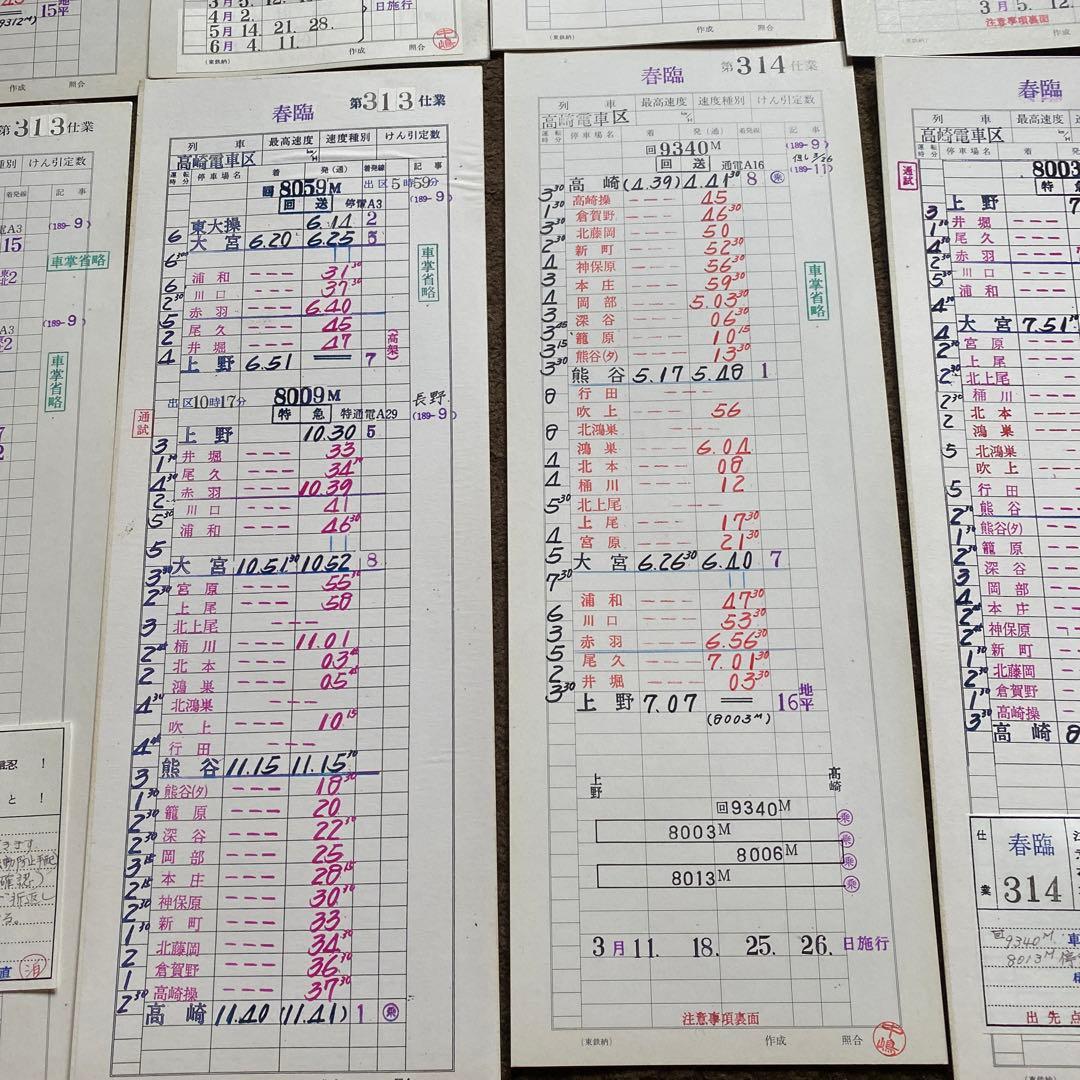 3月 5. 12.
4月 2.
5月 14. 21. 28.
6月 4. 11.
日施行
(東鉄納)
作成
照合
15
地平
(9312M)
作成
照合
作成
照合
3月 5. 12.
注意事項裏面
第313仕業
種別
けん引定数
着発線
記事
(189-9)
車掌省略
(189-9)
車掌省略
春臨
第313仕業
列車
最高速度
速度種別
けん引定数
高崎電車区
運転時分
停車場名
着
発(通)
着発線
記事
回8059M
出区5時59分
(189-9)
回送
停電A3
東大操 6.14 2
6
大宮 6.20 6.25 5
車掌省略
6
浦和 --- 31
6
川口 --- 37
2 30
赤羽 --- 6.40
5
尾久 --- 45
2
井堀 --- 47
(高架)
4
上野 6.51 7
8009M
出区10時17分
長野
通試
特急
特通電A29
(189-9)
上野 10.30 5
3
井堀 --- 33
1 30
尾久 --- 34
4 30
赤羽 --- 10.39
2
川口 --- 41
5 30
浦和 --- 46 30
5
大宮 10.51 30 10.52 8
3 30
宮原 --- 55
2 30
上尾 --- 58
3
北上尾 ---
桶川 --- 11.01
2 45
北本 --- 03 45
2
鴻巣 --- 05 45
4 30
北鴻巣 ---
吹上 --- 10 15
4 45
行田 ---
熊谷 11.15 11.15 30
3
熊谷(タ) --- 18 30
1 30
籠原 --- 20
2 30
深谷 --- 22 30
2 30
岡部 --- 25
3 15
本庄 --- 28 15
2 15
神保原 --- 30 30
2 30
新町 --- 33
1 30
北藤岡 --- 34 30
2
倉賀野 --- 36 30
1
高崎操 --- 37 30
2 30
高崎 11.40 (11.41) 1 乗
春臨
第314仕業
列車
最高速度
速度種別
けん引定数
高崎電車区
運転時分
停車場名
着
発(通)
着発線
記事
回9340M
(189-9)
回送
通電A16
(189-11)
高崎 (4.39) 4.41 30 8 乗
3 30
高崎操 --- 45
1 30
倉賀野 --- 46 30
3 30
北藤岡 --- 50
2 30
新町 --- 52 30
4
神保原 --- 56 30
3
本庄 --- 59 30
4
岡部 --- 5.03 30
3
深谷 --- 06 30
3 45
籠原 --- 10 15
3 15
熊谷(タ) --- 13 30
3 30
熊谷 5.17 5.48 1
車掌省略
行田 ---
8
吹上 --- 56
北鴻巣 ---
8
鴻巣 --- 6.04
4
北本 --- 08
4
桶川 --- 12
北上尾 ---
5 30
上尾 --- 17 30
4
宮原 --- 21 30
5
大宮 6.26 30 6.40 7
7 30
浦和 --- 47 30
6
川口 --- 53 30
3
赤羽 --- 6.56 30
5
尾久 --- 7.01 30
2
井堀 --- 03 30
3 30
上野 7.07 16 地平
(8003M)
上野
高崎
回9340M 乗
8003M 乗
8006M 乗
8013M 乗
3月 11. 18. 25. 26. 日施行
注意事項裏面
(東鉄納)
作成
照合
春臨
列車
最高速度
高崎電車区
運転時分
停車場名
着
8003
通試
特急
上野
3
井堀
尾久
赤羽
川口
浦和
大宮 7.51
宮原
上尾
北上尾
桶川
北本
鴻巣
北鴻巣
吹上
行田
熊谷
熊谷(タ)
籠原
深谷
岡部
本庄
神保原
新町
北藤岡
倉賀野
高崎操
高崎
仕業
春臨
314
回9340M
8013M
出先点
(東鉄納)